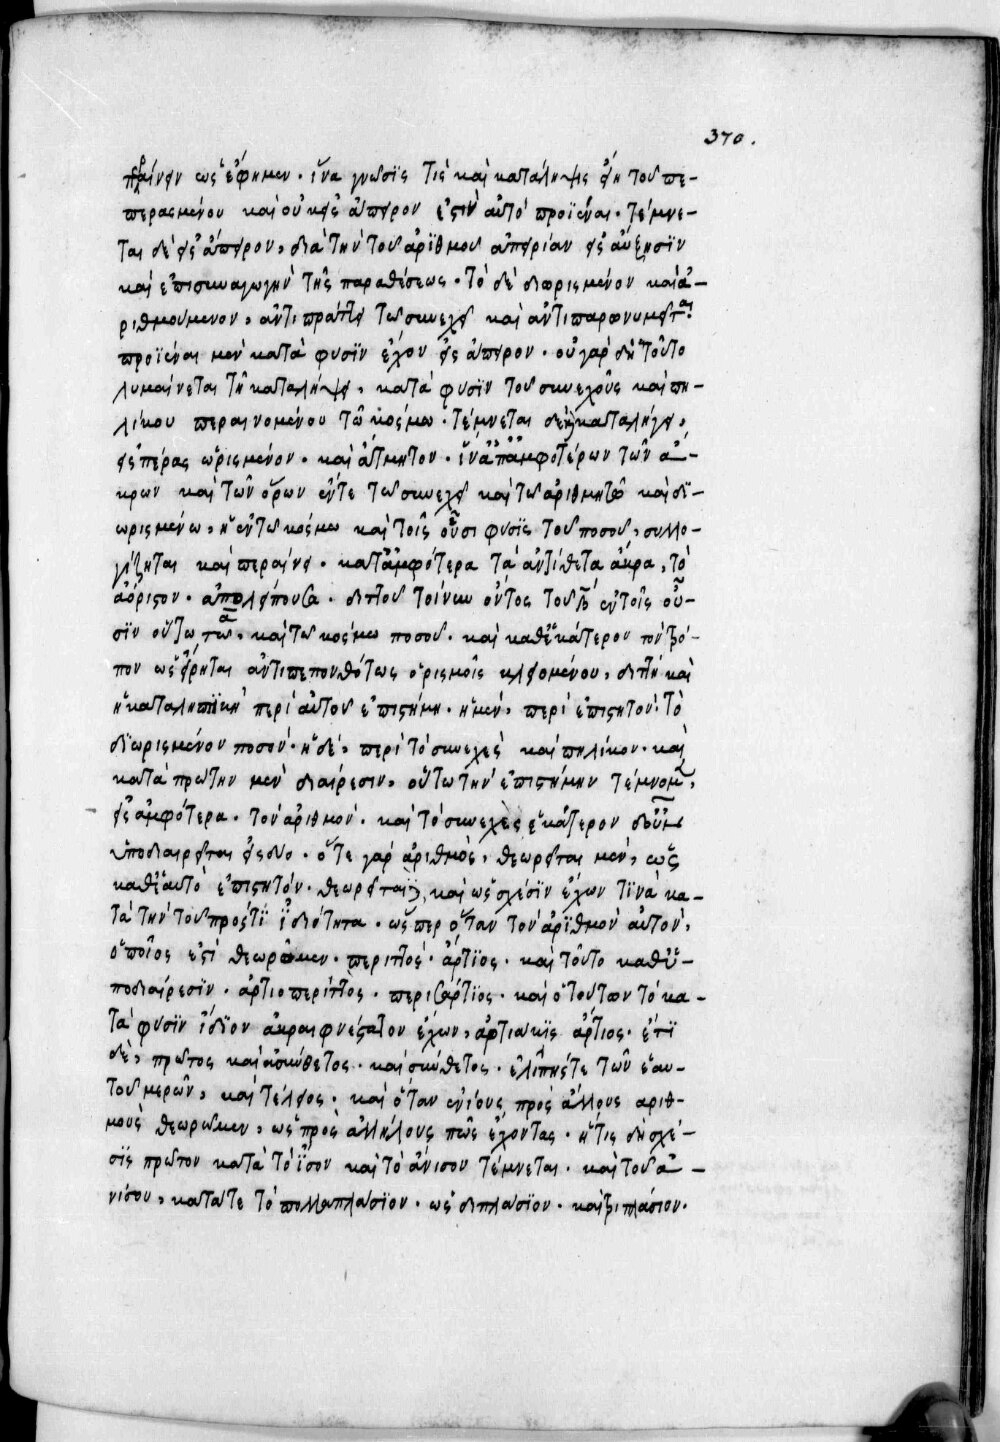 370.
περαίνειν ὡς ἔφημεν· ἵνα γνωσϊς τὶς καὶ κατάληψις εἴη του πε-
περασμένου καὶ οὐκ εἰς ἄπειρον ἐστὶν αὐτὸ προϊέναι· τέμνε-
ται δὲ εἰς ἄπειρον, διὰ τὴν τοῦ ἀρϊθμοῦ ἀπειρίαν εἰς αὔξησϊν
καὶ ἐπισυναγωγὴν τῆς παραθέσεως· τὸ δὲ διωρισμένον καὶ ἀ-
ριθμούμενον, ἀντιπράττει τῶ συνεχεῖ καὶ ἀντιπαρωνυμεῖται
προϊέναι μὲν κατὰ φυσϊν ἔχον εἰς ἄπειρον· οὐ γὰρ δὴ τοῦτο
λυμαίνεται τῆ καταλήψει, κατὰ φυσϊν τοῦ συνεχοῦς καὶ πη-
λίκου περαινομένου τῶ κόσμω· τέμνεται δὲ καταλήγει,
εἰς πέρας ὡρισμένον· καὶ ἄτμητον· ἵνα ἀπ' ἀμφοτέρων τῶν ἄ-
κρων καὶ τῶν ὅρων ἔντε τῶ συνεχεῖ καὶ τῶ ἀριθμητῶ καὶ δϊ-
ωρισμένω, ἡ ἐν τῶ κόσμω καὶ τοῖς οὖσι φυσϊς τοῦ ποσοῦ, συλλο-
γίζηται καὶ περαίνει· κατ' ἀμφότερα τὰ ἀντίθετα ἄκρα, τὸ
ἀόριστον· ἀπολείπουσα· διττοῦ τοίνυν ὄντος τοῦ ἐν τοῖς οὖ-
σϊν οὕτω καὶ τῶ κόσμω ποσοῦ· καὶ καθ' ἑκάτερον τὸν τρό-
πον ὡς εἴρηται ἀντιπεπονθότως ὁρισμοῖς κλειομένου, διττὴ καὶ
ἡ καταληπτϊκὴ περὶ αὐτοῦ ἐπιστήμη· ἡ μὲν, περὶ ἐπιστητὸν τὸ
δϊωρισμένον ποσὸν· ἡ δὲ, περὶ τὸ συνεχὲς καὶ πηλίκον· καὶ
κατὰ πρώτην μὲν διαίρεσιν, οὕτω τὴν ἐπιστήμην τέμνομεν,
εἰς ἀμφότερα· τὸν ἀριθμὸν· καὶ τὸ συνεχὲς ἑκάτερον
ὑποδιαιρεῖται εἰς δύο· ὅτε γὰρ ἀριθμὸς, θεωρεῖται μὲν, ὡς
καθ' ἑαυτὸ ἐπιστητόν· θεωρεῖται καὶ ὡς σχέσϊν ἔχων τϊνὰ κα-
τὰ τὴν τοῦ πρός τϊ ἰδϊότητα· ὥσπερ ὅταν τὸν ἀρϊθμὸν αὐτὸν,
ὁποῖος ἐστὶ θεωρῶμεν· περιττὸς· ἄρτϊος· καὶ τοῦτο καθ' ὑ-
ποδιαίρεσϊν· ἀρτιοπέριττος· περισσάρτϊος· καὶ ὁ τούτων τὸ κα-
τὰ φυσϊν ἴδϊον ἀκραιφνέστατον ἔχων, ἀρτιακϊς ἄρτιος· ἔτϊ
δὲ, πρῶτος καὶ ἀσύνθετος· καὶ σύνθετος· ἐλιπήςτε τῶν ἑαυ-
τοῦ μερῶν, καὶ τέλειος· καὶ ὅταν ἐνίους πρὸς ἄλλους ἀριθ-
μοὺς θεωρῶμεν, ὡς πρὸς ἀλλήλους πῶς ἔχοντας· ἥτις δὴ σχέ-
σϊς πρῶτον κατὰ τὸ ἴσον καὶ τὸ ἄνισον τέμνεται· καὶ τοῦ ἀ-
νίσου, κατάτε τὸ πολλαπλάσϊον· ὡς διπλάσϊον· καὶ τριπλάσιον·